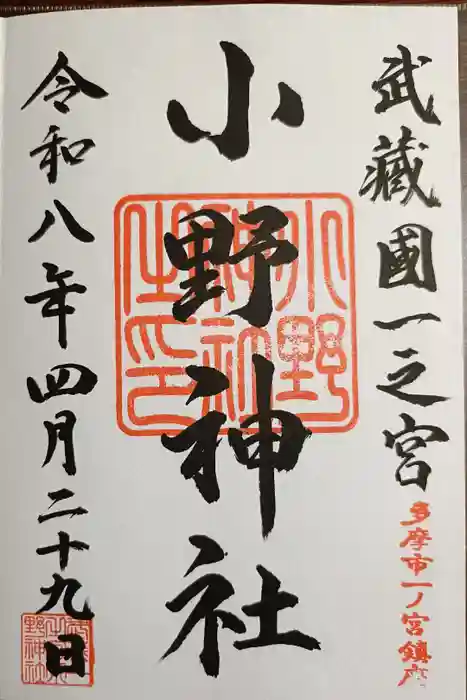 武藏國一之宮
多摩市一ノ宮鎮座
小野神社
小野神社之印
令和八年四月二十九日